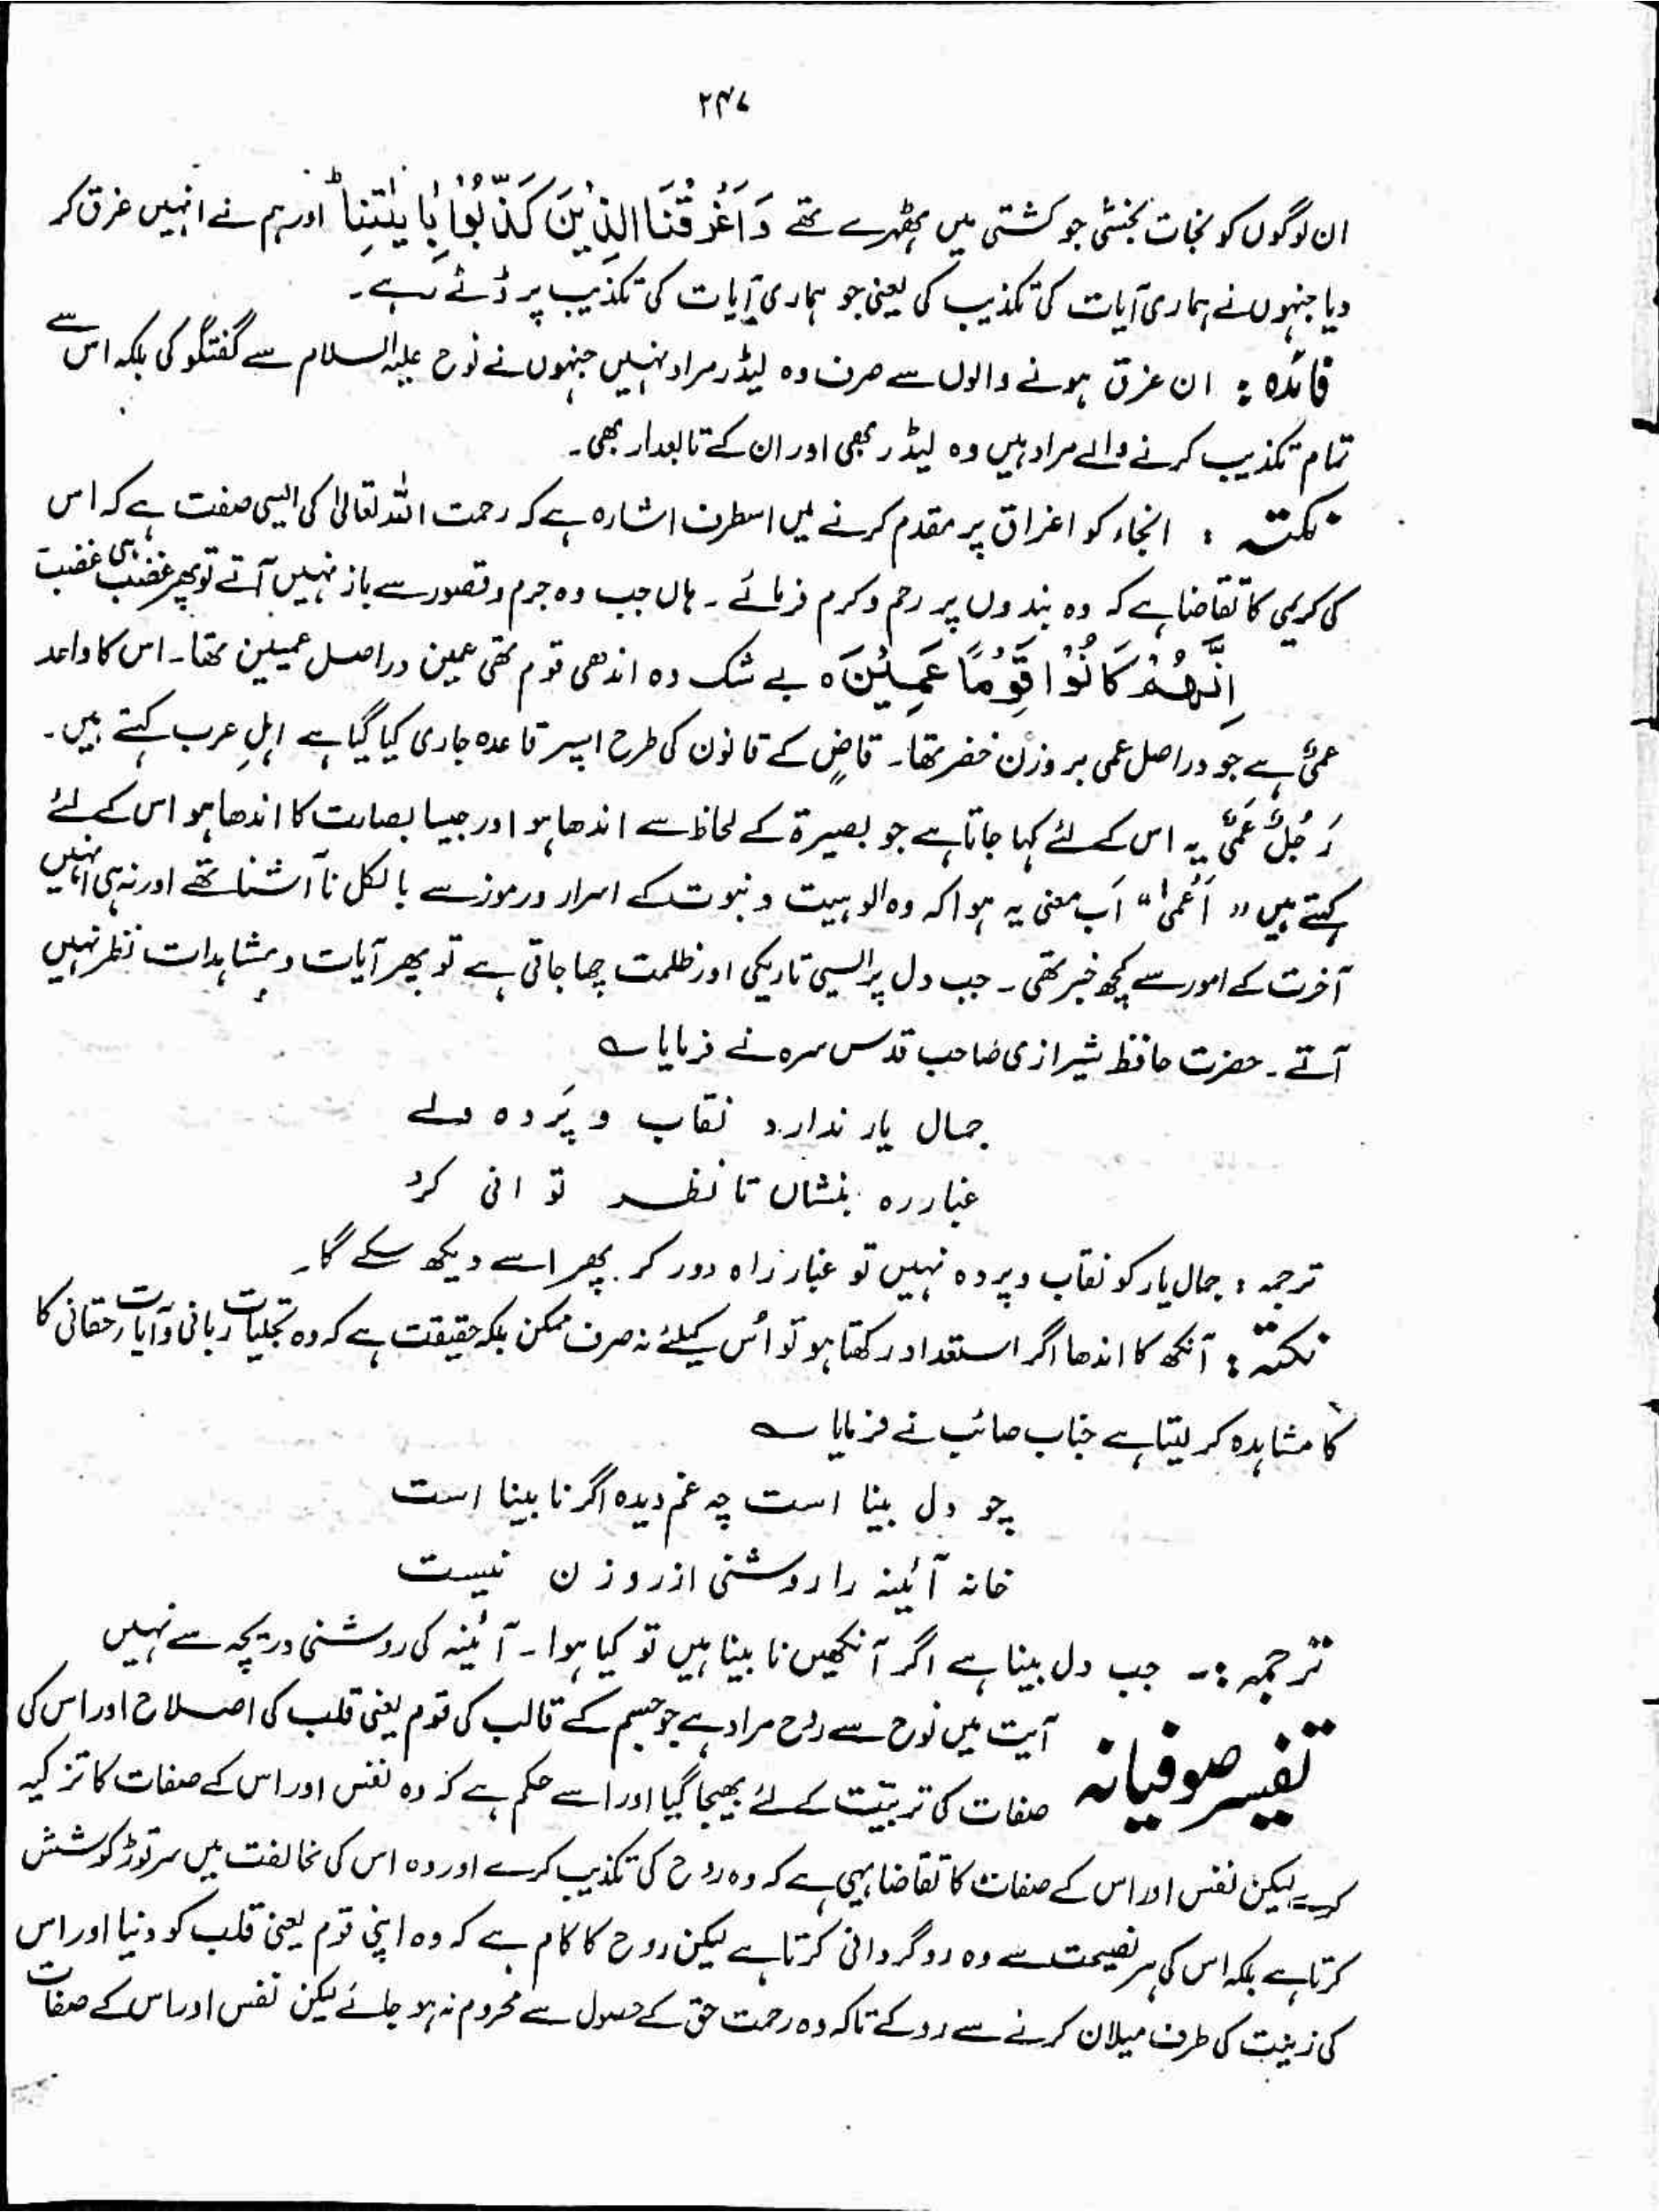 ۲۴۷
ان لوگوں کو نجات بخشی جو کشتی میں ٹھہرے تھے وَاَغْرَقْنَا الَّذِیْنَ کَذَّبُوْا بِاٰیٰتِنَاؕ اور ہم نے انہیں غرق کر
دیا جنہوں نے ہماری آیات کی تکذیب کی یعنی جو ہماری آیات کی تکذیب پر ڈٹے رہے۔
فائدہ : ان غرق ہونے والوں سے صرف وہ لیڈر مراد نہیں جنہوں نے نوح علیہ السلام سے گفتگو کی بلکہ اس سے
تمام تکذیب کرنے والے مراد ہیں وہ لیڈر بھی اور ان کے تابعدار بھی۔
نکتہ : انجاء کو اغراق پر مقدم کرنے میں اسطرف اشارہ ہے کہ رحمت اللہ تعالیٰ کی ایسی صفت ہے کہ اس
کی کریمی کا تقاضا ہے کہ وہ بندوں پر رحم و کرم فرمائے ۔ ہاں جب وہ جرم و قصور سے باز نہیں آتے تو پھر غضب ہی غضب
اِنَّهُمْ کَانُوْا قَوْمًا عَمِیْنَ ہ بے شک وہ اندھی قوم تھی عمین دراصل عمیین تھا۔ اس کا واحد
عمیٌ ہے جو دراصل عمی بروزن خضر تھا۔ قاضٍ کے قانون کی طرح اسپر قاعدہ جاری کیا گیا ہے اہلِ عرب کہتے ہیں۔
رَجُلٌ عَمیٌ یہ اس کے لئے کہا جاتا ہے جو بصیرۃ کے لحاظ سے اندھا ہو اور جیسا بصارت کا اندھا ہو اس کے لئے
کہتے ہیں " اَعْمیٰ " اَب معنی یہ ہوا کہ وہ الوہیت و نبوت کے اسرار و رموز سے بالکل نا آشنا تھے اور نہ ہی انہیں
آخرت کے امور سے کچھ خبر تھی ۔ جب دل پر ایسی تاریکی اور ظلمت چھا جاتی ہے تو پھر آیات و مشاہدات نظر نہیں
آتے ۔ حضرت حافظ شیرازی صاحب قدس سرہ نے فرمایا ؎
جمال یار ندارد نقاب و پَردہ ولے
غبار رہ بنشاں تا نظر توانی کرد
ترجمہ : جمال یار کو نقاب و پردہ نہیں تو غبار راہ دور کر پھر اسے دیکھ سکے گا۔
نکتہ : آنکھ کا اندھا اگر استعداد رکھتا ہو تو اُس کیلئے نہ صرف ممکن بلکہ حقیقت ہے کہ وہ تجلیات ربانی و آیات حقانی کا
کا مشاہدہ کر لیتا ہے جناب صائب نے فرمایا ؎
چو دل بینا است چہ غم دیدہ اگر نا بینا است
خانہ آئینہ را روشنی از روزن نیست
ترجمہ :۔ جب دل بینا ہے اگر آنکھیں نا بینا ہیں تو کیا ہوا ۔ آئینہ کی روشنی دریچہ سے نہیں
تفسیر صوفیانہ آیت میں نوح سے روح مراد ہے جو جسم کے قالب کی قوم یعنی قلب کی اصلاح اور اس کی
صفات کی تربیّت کے لئے بھیجا گیا اور اسے حکم ہے کہ وہ نفس اور اس کے صفات کا تزکیہ
کرے لیکن نفس اور اس کے صفات کا تقاضا یہی ہے کہ وہ روح کی تکذیب کرے اور وہ اس کی مخالفت میں سر توڑ کوشش
کرتا ہے بلکہ اس کی ہر نصیحت سے وہ روگردانی کرتا ہے لیکن روح کا کام ہے کہ وہ اپنی قوم یعنی قلب کو دنیا اور اس
کی زینت کی طرف میلان کرنے سے روکے تاکہ وہ رحمت حق کے حصول سے محروم نہ ہو جائے لیکن نفس اور اس کے صفات